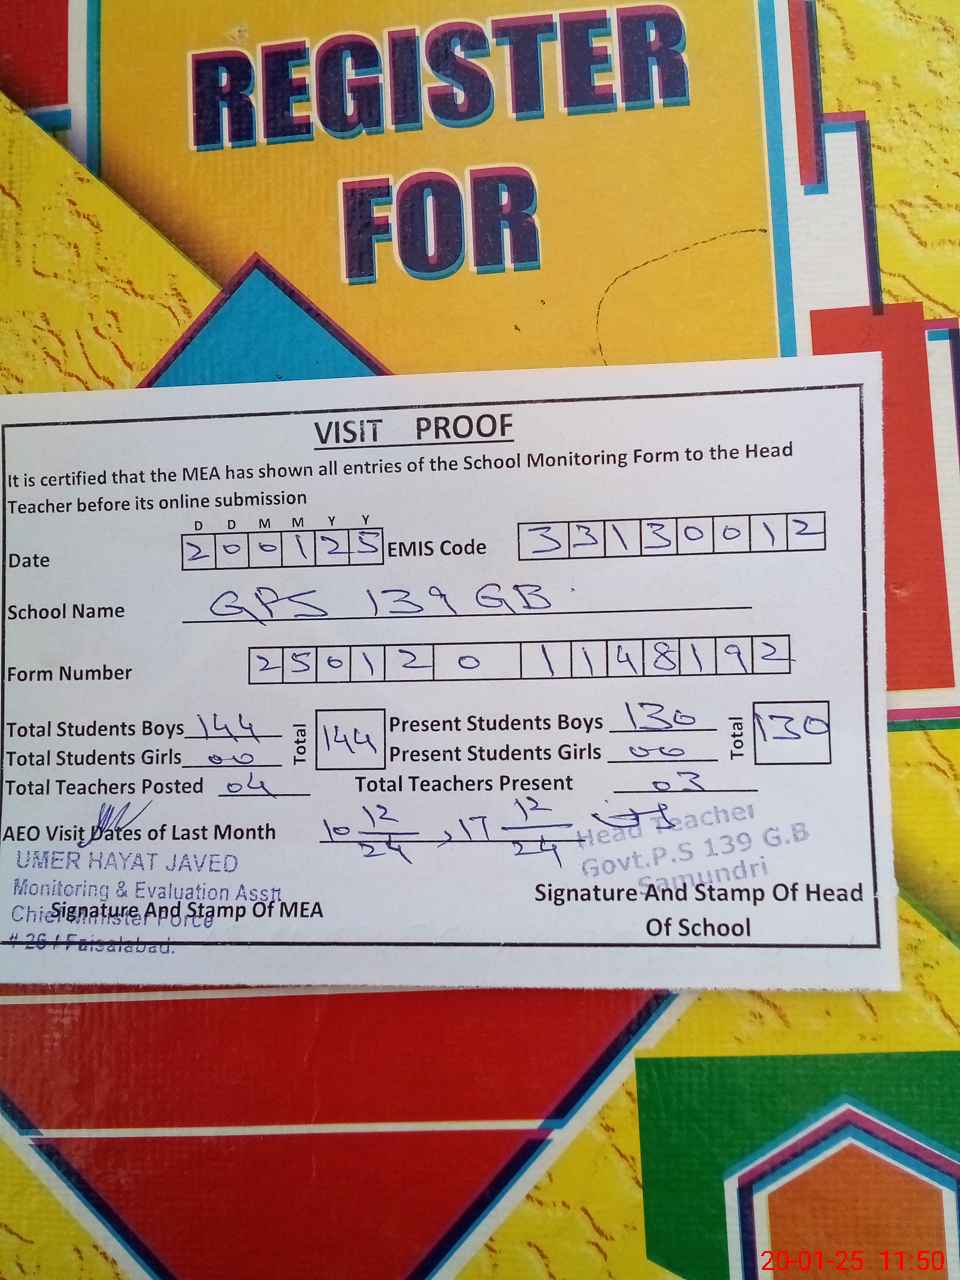 REGISTER
FOR
VISIT PROOF
It is certified that the MEA has shown all entries of the School Monitoring Form to the Head
Teacher before its online submission
D D M M Y Y
Date 200125 EMIS Code 33130012
School Name GPS 139 GB
Form Number 2501201148192
Total Students Boys 144 Total 144 Present Students Boys 130 Total 130
Total Students Girls 00 Present Students Girls 00
Total Teachers Posted 04 Total Teachers Present 03
AEO Visit Dates of Last Month 10 12/24, 17 12/24
Head Teacher
Govt.P.S 139 G.B
Samundri
UMER HAYAT JAVED
Monitoring & Evaluation Asstt
Chief Minister Force
# 26 / Faisalabad.
Signature And Stamp Of MEA
Signature And Stamp Of Head
Of School
20-01-25 11:50